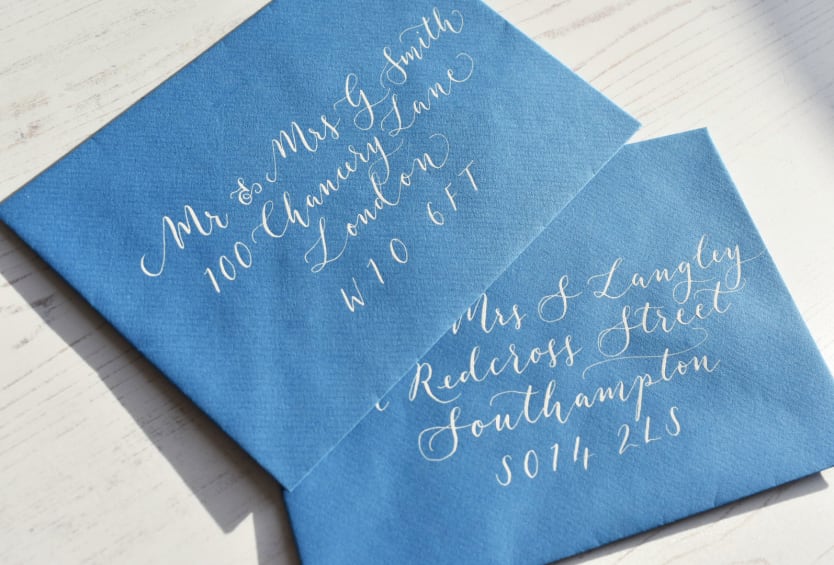 Mr & Mrs G Smith
100 Chancery Lane
London
W10 6FT
Mrs S Langley
Redcross Street
Southampton
SO14 2LS